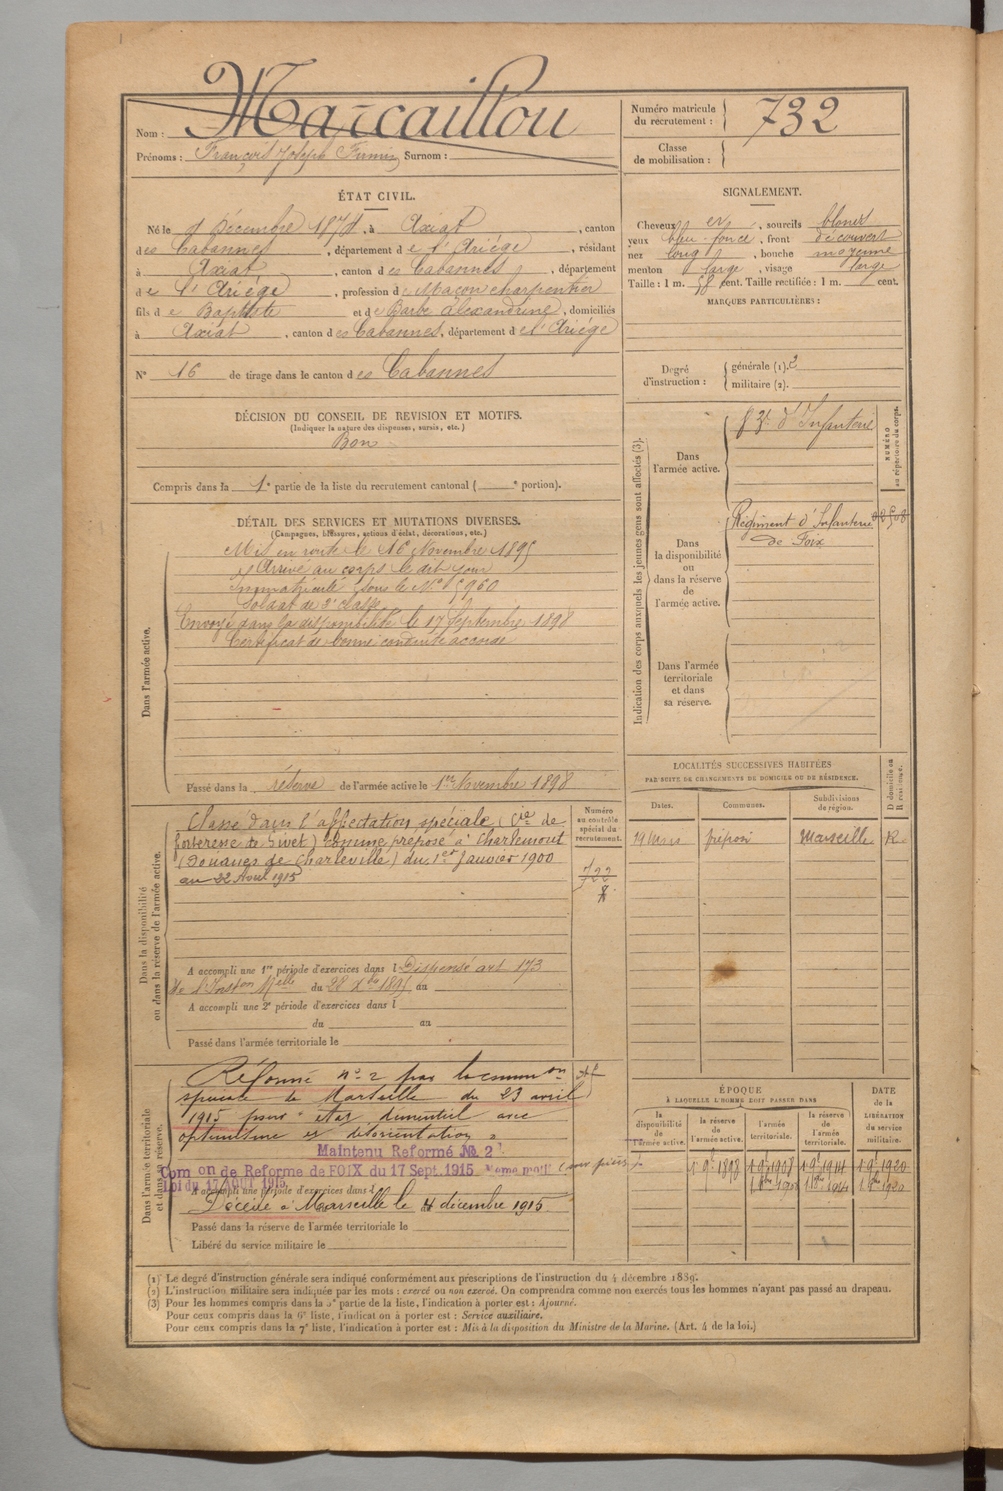 Nom : Marcaillou
Prénoms : François Joseph Firmin Surnom :
Numéro matricule du recrutement : 732
Classe de mobilisation :
ÉTAT CIVIL.
Né le 1 Décembre 1874, à Axiat, canton
des Cabannes, département de l'Ariège, résidant
à Axiat, canton des Cabannes, département
de l'Ariège, profession de Maçon charpentier
fils de Baptiste et de Barbe Alexandrine, domiciliés
à Axiat, canton des Cabannes, département de l'Ariège
N° 16 de tirage dans le canton des Cabannes
SIGNALEMENT.
Cheveux et, sourcils blond
yeux bleu-foncé, front découvert
nez long, bouche moyenne
menton large, visage large
Taille : 1 m. 58 cent. Taille rectifiée : 1 m. cent.
MARQUES PARTICULIÈRES :
Degré d'instruction : générale (1). 2
militaire (2).
DÉCISION DU CONSEIL DE REVISION ET MOTIFS.
(Indiquer la nature des dispenses, sursis, etc.)
Bon
Compris dans la 1e partie de la liste du recrutement cantonal ( e portion).
DÉTAIL DES SERVICES ET MUTATIONS DIVERSES.
(Campagnes, blessures, actions d'éclat, décorations, etc.)
Dans l'armée active.
Mis en route le 16 Novembre 1895
et Arrivé au corps le dit jour
Immatriculé sous le N°
Soldat de 2e classe
Envoyé dans la disponibilité le 17 Septembre 1898
Certificat de bonne conduite accordé
Passé dans la réserve de l'armée active le 1er Novembre 1898
Indication des corps auxquels les jeunes gens sont affectés (3).
NUMÉRO au répertoire du corps.
Dans l'armée active.
83e d'Infanterie
Dans la disponibilité ou dans la réserve de l'armée active.
Régiment d'Infanterie
de Foix
Dans l'armée territoriale et dans sa réserve.
LOCALITÉS SUCCESSIVES HABITÉES
PAR SUITE DE CHANGEMENTS DE DOMICILE OU DE RÉSIDENCE.
Dates. Communes. Subdivisions de région. D domicile ou R résidence.
préposé Marseille R
Dans la disponibilité ou dans la réserve de l'armée active.
Numéro au contrôle spécial du recrutement.
722
Classé dans l'affectation spéciale (Cie de
forteresse de Givet) comme préposé à Charlemont
(Douanes de Charleville) du 1er Janvier 1900
au 22 Aout 1915
A accompli une 1re période d'exercices dans l Dispensé art 173
de l'Inston Melle du 28 Xbre 1895 au
A accompli une 2e période d'exercices dans l
du au
Passé dans l'armée territoriale le
Dans l'armée territoriale et dans sa réserve.
Réformé n° 2 par la common
spéciale de Marseille du 23 avril
1915 pour "état démentiel avec
et désorientation"
Maintenu Reformé № 2
Com on de Reforme de FOIX du 17 Sept. 1915 Même motif (sur pièces)
Loi du 17 AOUT 1915.
A accompli une période d'exercices dans l
Décédé à Marseille le 4 décembre 1915
Passé dans la réserve de l'armée territoriale le
Libéré du service militaire le
ÉPOQUE
À LAQUELLE L'HOMME DOIT PASSER DANS
la disponibilité de l'armée active. la réserve de l'armée active. l'armée territoriale. la réserve de l'armée territoriale.
DATE de la LIBÉRATION du service militaire.
1 9e 1898 1 9e 1908 1 9e 1914 1 9e 1920
(1) Le degré d'instruction générale sera indiqué conformément aux prescriptions de l'instruction du 4 décembre 1889.
(2) L'instruction militaire sera indiquée par les mots : exercé ou non exercé. On comprendra comme non exercés tous les hommes n'ayant pas passé au drapeau.
(3) Pour les hommes compris dans la 5e partie de la liste, l'indication à porter est : Ajourné.
Pour ceux compris dans la 6e liste, l'indication à porter est : Service auxiliaire.
Pour ceux compris dans la 7e liste, l'indication à porter est : Mis à la disposition du Ministre de la Marine. (Art. 4 de la loi.)